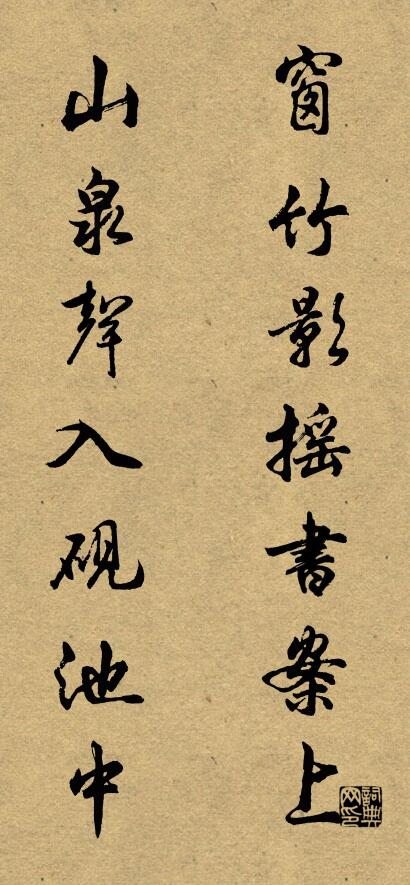 窗竹影摇書案上
山泉聲入硯池中
詞典
网印